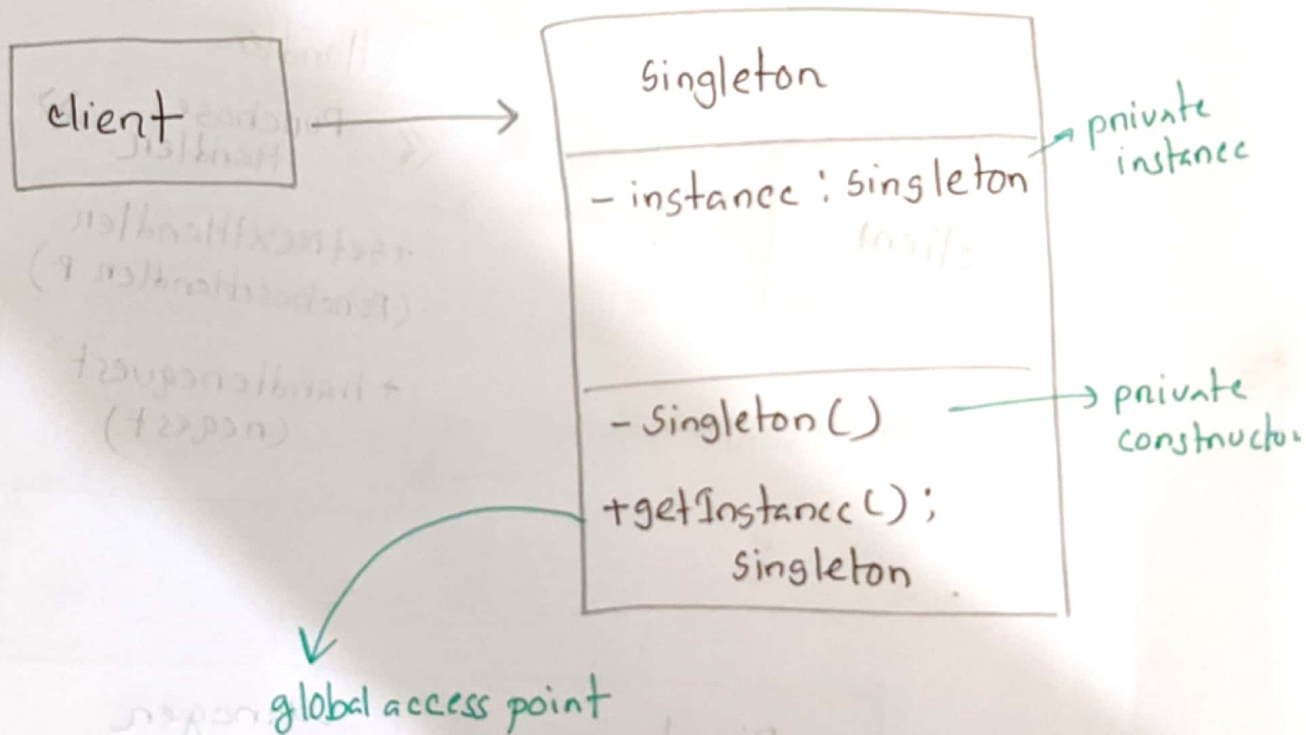 client
Singleton
- instance : Singleton
private
instance
- Singleton()
private
constructo
+getInstance();
Singleton
global access point